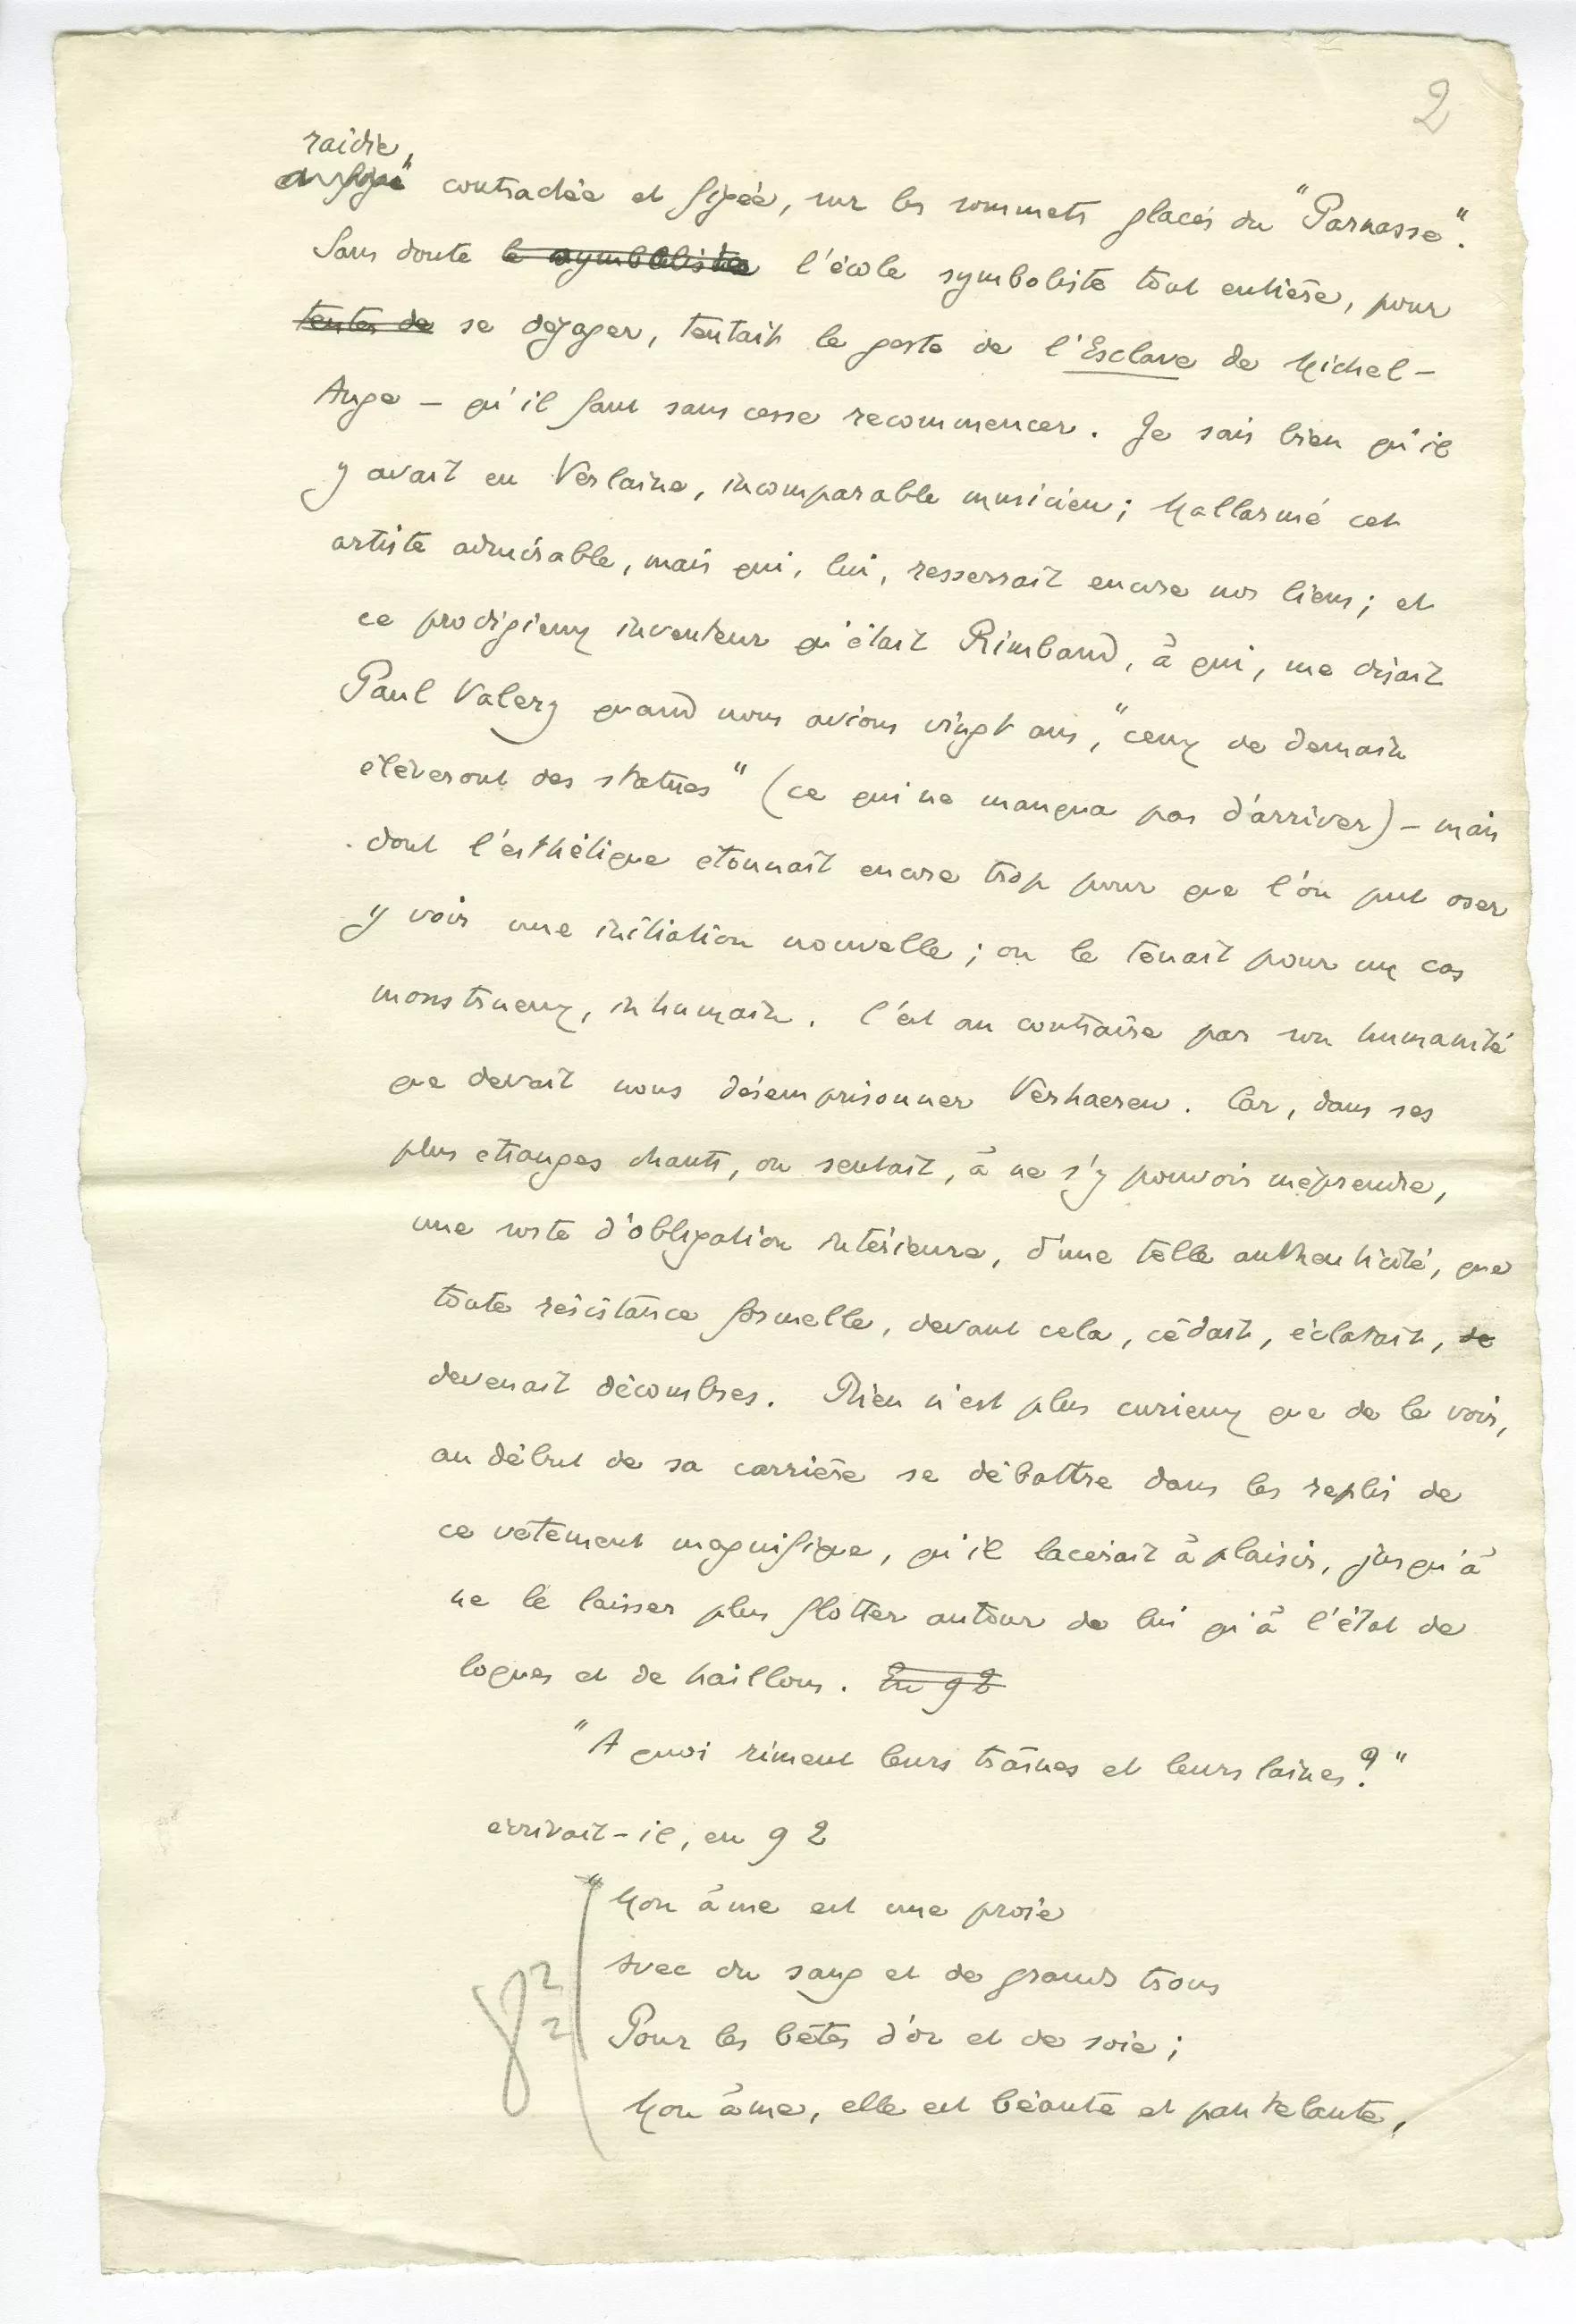 2
raidie,
contractée et figée, sur les sommets glacés du "Parnasse".
Sans doute le symboliste l'école symboliste tout entière, pour
tenter de se degager, tentait le geste de l'Esclave de Michel-
Ange – qu'il faut sans cesse recommencer. Je sais bien qu'il
y avait eu Verlaine, incomparable musicien; Mallarmé cet
artiste admirable, mais qui, lui, resserrait encore nos liens; et
ce prodigieux inventeur qu'était Rimbaud, à qui, me disait
Paul Valery quand nous avions vingt ans, "ceux de demain
élèveront des statues" (ce qui ne manqua pas d'arriver) – mais
dont l'esthétique étonnait encore trop pour que l'on put oser
y voir une initiation nouvelle; on le tenait pour un cas
monstrueux, inhumain. C'est au contraire par son humanité
que devait nous désemprisonner Verhaeren. Car, dans ses
plus etranges chants, on sentait, à ne s'y pouvoir méprendre,
une sorte d'obligation intérieure, d'une telle authenticité, que
toute résistance formelle, devant cela, cédait, éclatait, se
devenait décombres. Rien n'est plus curieux que de le voir,
au début de sa carrière se débattre dans les replis de
ce vetement magnifique, qu'il lacerait à plaisir, jusqu'à
ne le laisser plus flotter autour de lui qu'à l'état de
loques et de haillons. En 92
"A quoi riment leurs traînes et leurs laines?"
ecrivait-il, en 92
"Mon âme est une proie
Avec du sang et de grands trous
Pour les bêtes d'or et de soie;
Mon âme, elle est béante et pantelante,